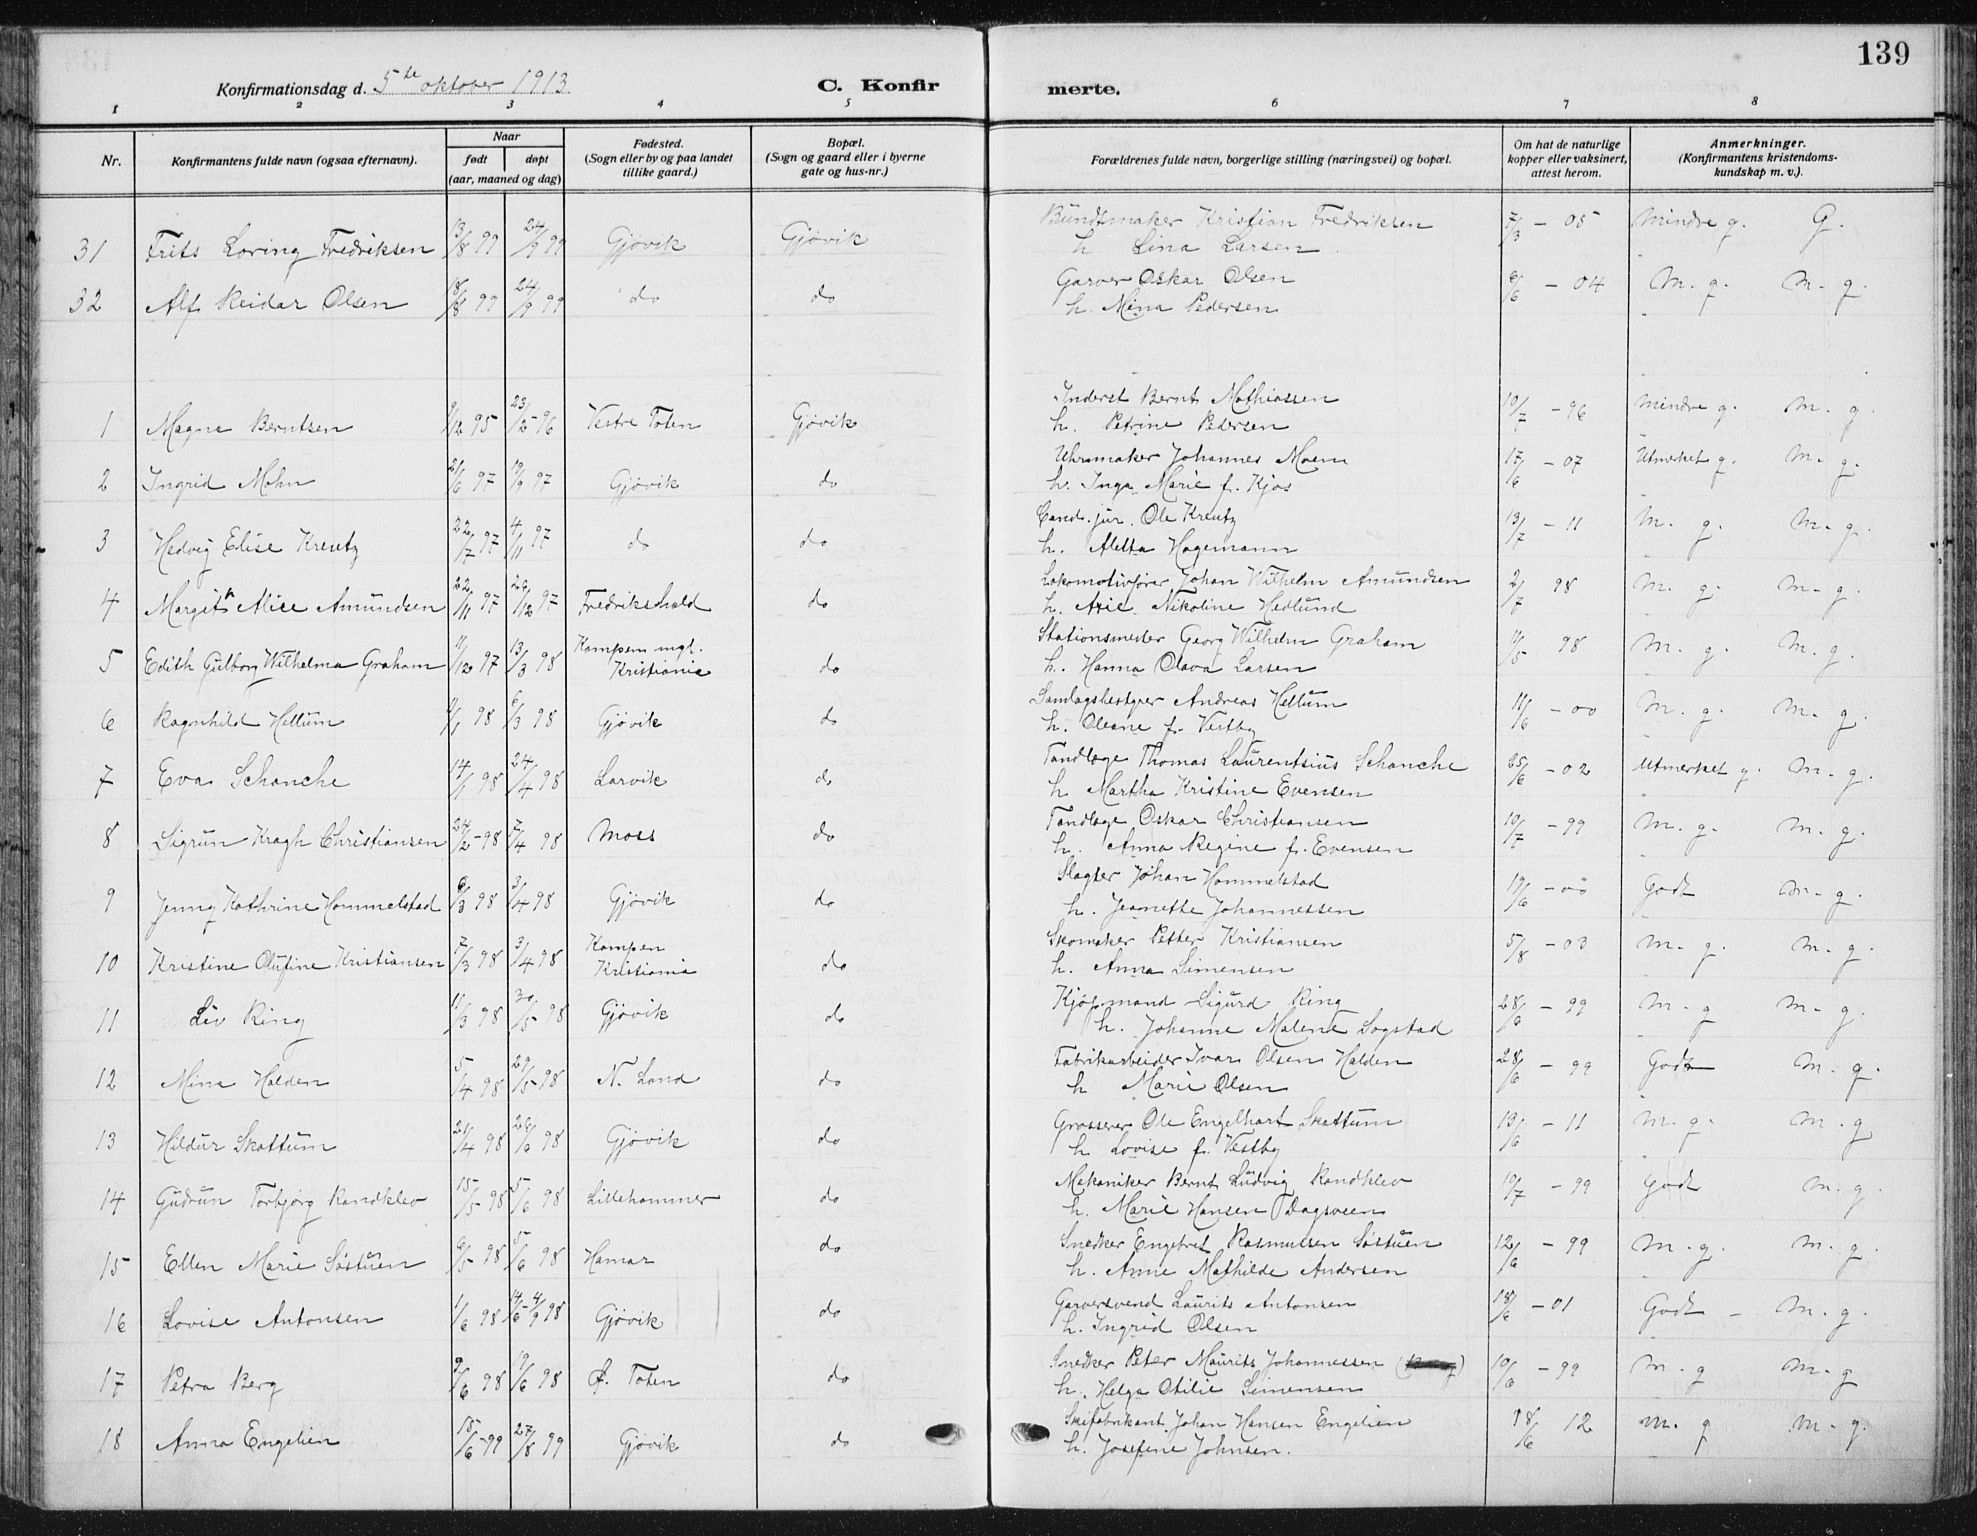 139
Konfirmationsdag d. 5te oktober 1913.
C. Konfirmerte.
1 2 3 4 5 6 7 8
Nr.
Konfirmantens fulde navn (ogsaa efternavn).
Naar
født døpt
(aar, maaned og dag)
Fødested.
(Sogn eller by og paa landet
tillike gaard.)
Bopæl.
(Sogn og gaard eller i byerne
gate og hus-nr.)
Forældrenes fulde navn, borgerlige stilling (næringsvei) og bopæl.
Om hat de naturlige
kopper eller vaksinert,
attest herom.
Anmerkninger.
(Konfirmantens kristendoms-
kundskap m. v.).
31 Frits Loring Fredriksen 13/8 99 24/9 99 Gjøvik Gjøvik Bundtmaker Kristian Fredriksen - 05 Mindre g. G.
h. Lina Larsen
32 Alf Reidar Olsen 18/8 99 24/9 99 do do Garver Oskar Olsen - 04 M. g. M. g.
h. Mina Pedersen
1 Magne Berntsen 9/12 95 23/2-96 Vestre Toten Gjøvik Inderst Bernt Mathiassen 10/7 - 96 Mindre g. M. g.
h. Petrine Pedersen
2 Ingrid Mohn 21/6 97 19/9 97 Gjøvik do Uhrmaker Johannes Moen 17/6 - 07 Utmerket g. M. g.
h. Inga Marie f. Kjos
3 Hedvig Elise Kreutz 22/7 97 4/11 97 do do Cand. jur. Ole Kreutz 13/7 - 11 M. g. M. g.
h. Aletta Hagemann
4 Margit Alise Amundsen 22/11 97 26/12 97 Fredrikshald do Lokomotivfører Johan Wilhelm Amundsen 2/7 98 M. g. M. g.
h. Nikoline Hedlund
5 Edith Gulborg Wilhelma Graham 11/12 97 13/3 98 Kampen mgl. Kristiania do Stationsmester Georg Wilhelm Graham 11/5 98 M. g. M. g.
h. Hanna Olava Larsen
6 Ragnhild Hellum 98 6/3 98 Gjøvik do Samlagsbestyrer Andreas Hellum 11/6 - 00 M. g. M. g.
h. Oleane f. Vestby
7 Eva Schanche 14/1 98 24/4 98 Larvik do Tandlæge Thomas Laurentsius Schanche 25/6 - 02 Utmerket g. M. g.
h. Martha Kristine Evensen
8 Sigrun Kragh Christiansen 24/2-98 7/4 98 Moss do Tandlæge Oskar Christiansen 10/7 - 99 M. g. M. g.
h. Anna Regine f. Evensen
9 Jenny Kathrine Hommelstad 6/3 98 3/4 98 Gjøvik do Slagter Johan Hommelstad 19/6 - 00 Godt M. g.
h. Jeanette Johannessen
10 Kristine Olufine Kristiansen 7/3 98 3/4 98 Kampen Kristiania do Skomaker Petter Kristiansen 5/8 - 03 M. g. M. g.
h. Anna Simensen
11 Liv Ring 11/3 98 30/5 98 Gjøvik do Kjøpmand Sigurd Ring 28/6 - 99 M. g M. g.
h. Johanne Malene Sogstad
12 Mina Halden 5/4 98 29/5-98 N. Land do Fabrikarbeider Ivar Olsen Halden 28/6 - 99 Godt M. g.
h Marie Olsen
13 Hildur Skattum 21/4 98 26/6 98 Gjøvik do Grosserer Ole Engelhart Skattum 13/6 - 11 M. g. M. g
h Lovise f. Vestby
14 Gudrun Torbjørg Randklev 15/5 98 5/6 98 Lillehammer do Mekaniker Bernt Ludvig Randklev 10/7 - 99 Godt M. g.
h. Marie Hansen Dagsveen
15 Ellen Marie Søstuen 6/5 98 5/6 98 Hamar do Snedker Engebret Rasmussen Søstuen 12/6 - 99 M. g. M. g.
h. Anne Mathilde Andersen
16 Lovise Antonsen 1/6 98 14/6-4/9 98 Gjøvik do Garversvend Laurits Antonsen 18/6 - 01 Godt - M. g.
h. Ingrid Olsen
17 Petra Berg 9/6 98 19/6 98 Ø. Toten do Snedker Peter Maurits Johannessen 10/6 - 99 M. g M. g
h. Helga Otilie Simensen
18 Anna Engelien 15/6-99 27/8 99 Gjøvik do Skifabrikant Johan Hansen Engelien 18/6 12 M. g M. g.
h. Josefine Johnsen.